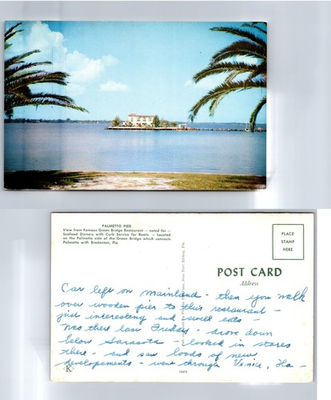 PALMETTO PIER
View from Famous Green Bridge Restaurant — noted for —
Seafood Dinners with Curb Service for Boats — located
on the Palmetto side of the Green Bridge which connects
Palmetto with Bradenton, Fla.
PLACE
STAMP
HERE
POST CARD
Address
Car left on mainland - then you walk
over wooden pier to this restaurant -
just interesting and swell eats -
Was there last Friday - drove down
below Sarasota - looked in stores
there - and saw loads of new
developments - went through Venice, Ha-
K